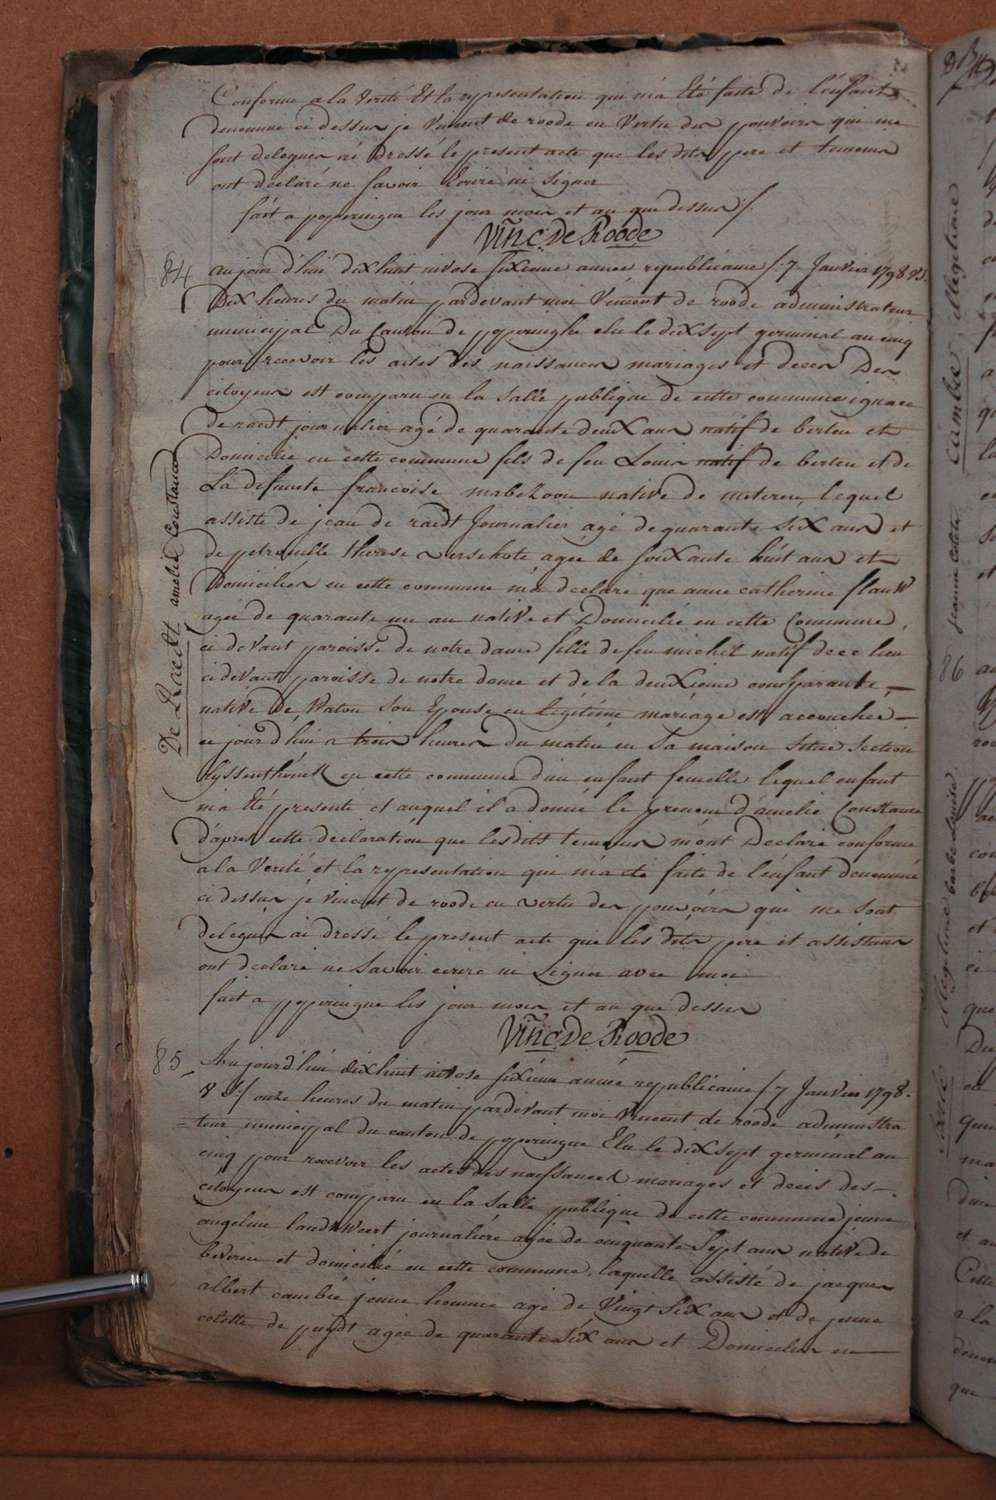 Conforme a la Verité Et la representation qui m'a Eté faite de L'enfant
denommé ci dessus je Vincent de roode en Vertu des pouvoirs qui me
sont deleguer ai dressé le present acte que les dits pere et temoins
ont declaré ne savoir Ecrire ni signer
fait a poperingue les jour mois et an que dessus /.
Vinc. De Roode
84
aujourd'hui dix huit nivose sixieme année republicaine /: 7 Janvier 1798
Dix heures du matin pardevant moi Vincent de roode administrateur
municipal Du Canton de poperinghe elu le dix sept germinal an cinq
pour recevoir les actes des naissances mariages et deces Des
citoyens est comparu en la salle publique de cette commune ignace
de raedt journalier agé de quarante deux ans natif de berten et
Domicilié en cette commune fils de feu Louis natif de berten et de
La defuncte francoise mabezoon native de meteren, lequel
assisté de jean de raedt Journalier agé de quarante six ans et
de petronille therese agée de soixante huit ans et
Domiciliés en cette commune m'a declaré que anne catherine
agée de quarante un an native et Domiciliée en cette Commune,
ci devant paroisse de notre dame fille de feu michel natif de ce lieu
ci devant paroisse de notre dame et de la
native de Watou son Epouse en legitime mariage est accouchée
ce jourd'hui a trois heures du matin en Sa maison Sitüe section
en cette commune d'un enfant femelle lequel enfant
m'a Eté presenté et auquel il a donné le prenom d'amelie Constance
d'apres cette declaration que les dits temoins m'ont Declaré conforme
a la Verité et la representation qui m'a été faite de L'enfant denommé
ci dessus je vincent de roode en vertu des pouvoirs qui me sont
deleguer ai dressé le present acte que les dits pere et assisteurs
ont declaré ne Savoir ecrire ni Signer avec moi
fait a poperingue les jour mois et an que dessus
Vinc. De Roode
De Raedt amelie Constance
85
Aujourd'hui dix huit nivose sixieme année republicaine /: 7 Janvier 1798.
onze heures du matin pardevant moi Vincent de roode administra
teur municipal du canton de poperingue Elu le dix sept germinal an
cinq pour recevoir les actes des naissances mariages et deces des
citoyens est comparu en la salle publique de cette commune jeanne
angeline journaliere agée de cinquante Sept ans native de
et domiciliée en cette commune, laquelle assisté de jacques
albert cambié jeune homme agé de Vingt six ans et de jeanne
colette de puydt agée de quarante six ans et Domicilies en
cambié
86